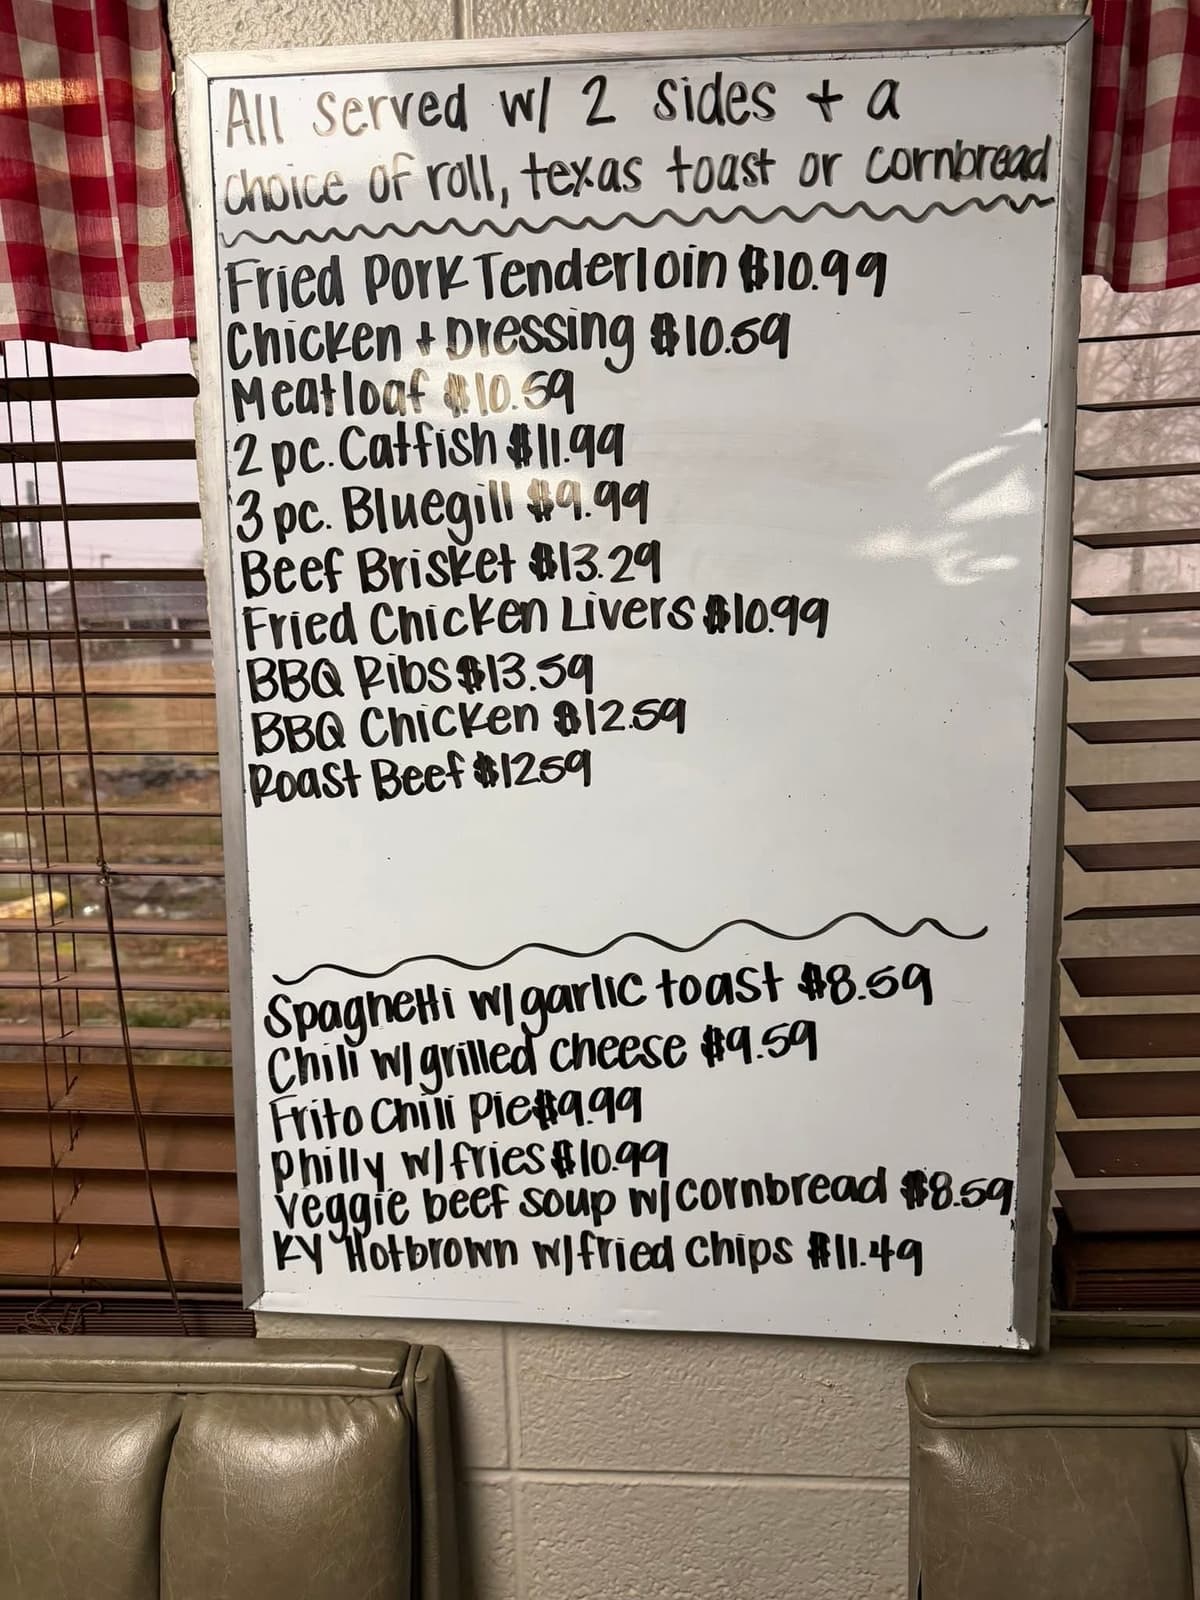 All served w/ 2 sides + a
choice of roll, texas toast or cornbread
Fried Pork Tenderloin $10.99
Chicken + Dressing $10.59
Meatloaf $10.59
2 pc. Catfish $11.99
3 pc. Bluegill $9.99
Beef Brisket $13.29
Fried Chicken Livers $10.99
BBQ Ribs $13.59
BBQ Chicken $12.59
Roast Beef $1259
Spaghetti w/garlic toast $8.59
Chili w/grilled cheese $9.59
Frito Chili Pie $9.99
Philly w/fries $10.99
Veggie beef soup w/cornbread $8.59
KY Hotbrown w/fried chips $11.49